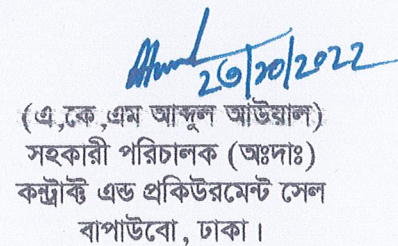 ২৩/১০/২০২২
(এ,কে,এম আব্দুল আউয়াল)
সহকারী পরিচালক (অঃদাঃ)
কন্ট্রাক্ট এন্ড প্রকিউরমেন্ট সেল
বাপাউবো, ঢাকা।